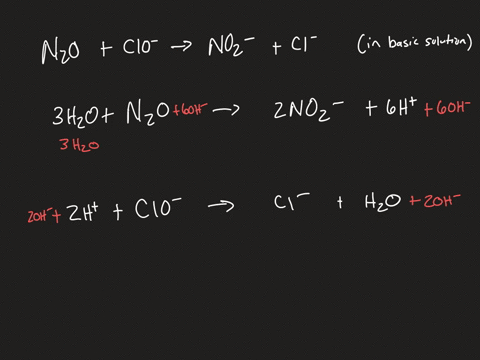 N₂O + ClO⁻ → NO₂⁻ + Cl⁻ (in basic solution)
3H₂O + N₂O +6OH⁻ → 2NO₂⁻ + 6H⁺ +6OH⁻
3H₂O
2OH⁻ + 2H⁺ + ClO⁻ → Cl⁻ + H₂O +2OH⁻